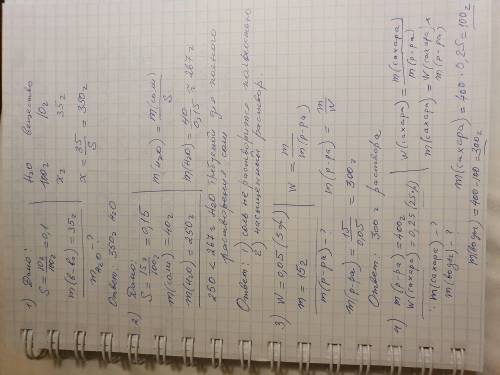 1) Дано:
S = 10г/100г = 0,1
m(в-ва) = 35г
m H₂O - ?
H₂O вещество
100г 10г
x г 35г
x = 35/S = 350г
Ответ: 350г H₂O
2) Дано:
S = 15г/100г = 0,15
m(соли) = 40г
m(H₂O) = 250г
m(H₂O) = m(соли)/S
m(H₂O) = 40/0,15 ≈ 267г
250 < 267г H₂O требуется для полного
растворения соли
Ответ: 1) соль не растворится полностью
2) насыщенный раствор
3) W = 0,05 (5%)
m = 15г
m(р-ра) - ?
W = m/m(р-ра)
m(р-ра) = m/W
m(р-ра) = 15/0,05 = 300г
Ответ: 300г раствора
4) m(р-ра) = 400г
W(сахара) = 0,25 (25%)
m(сахара) - ?
m(воды) - ?
W(сахара) = m(сахара)/m(р-ра)
m(сахара) = W(сахара) × m(р-ра)
m(сахара) = 400 · 0,25 = 100г
m(воды) = 400-100 = 300г